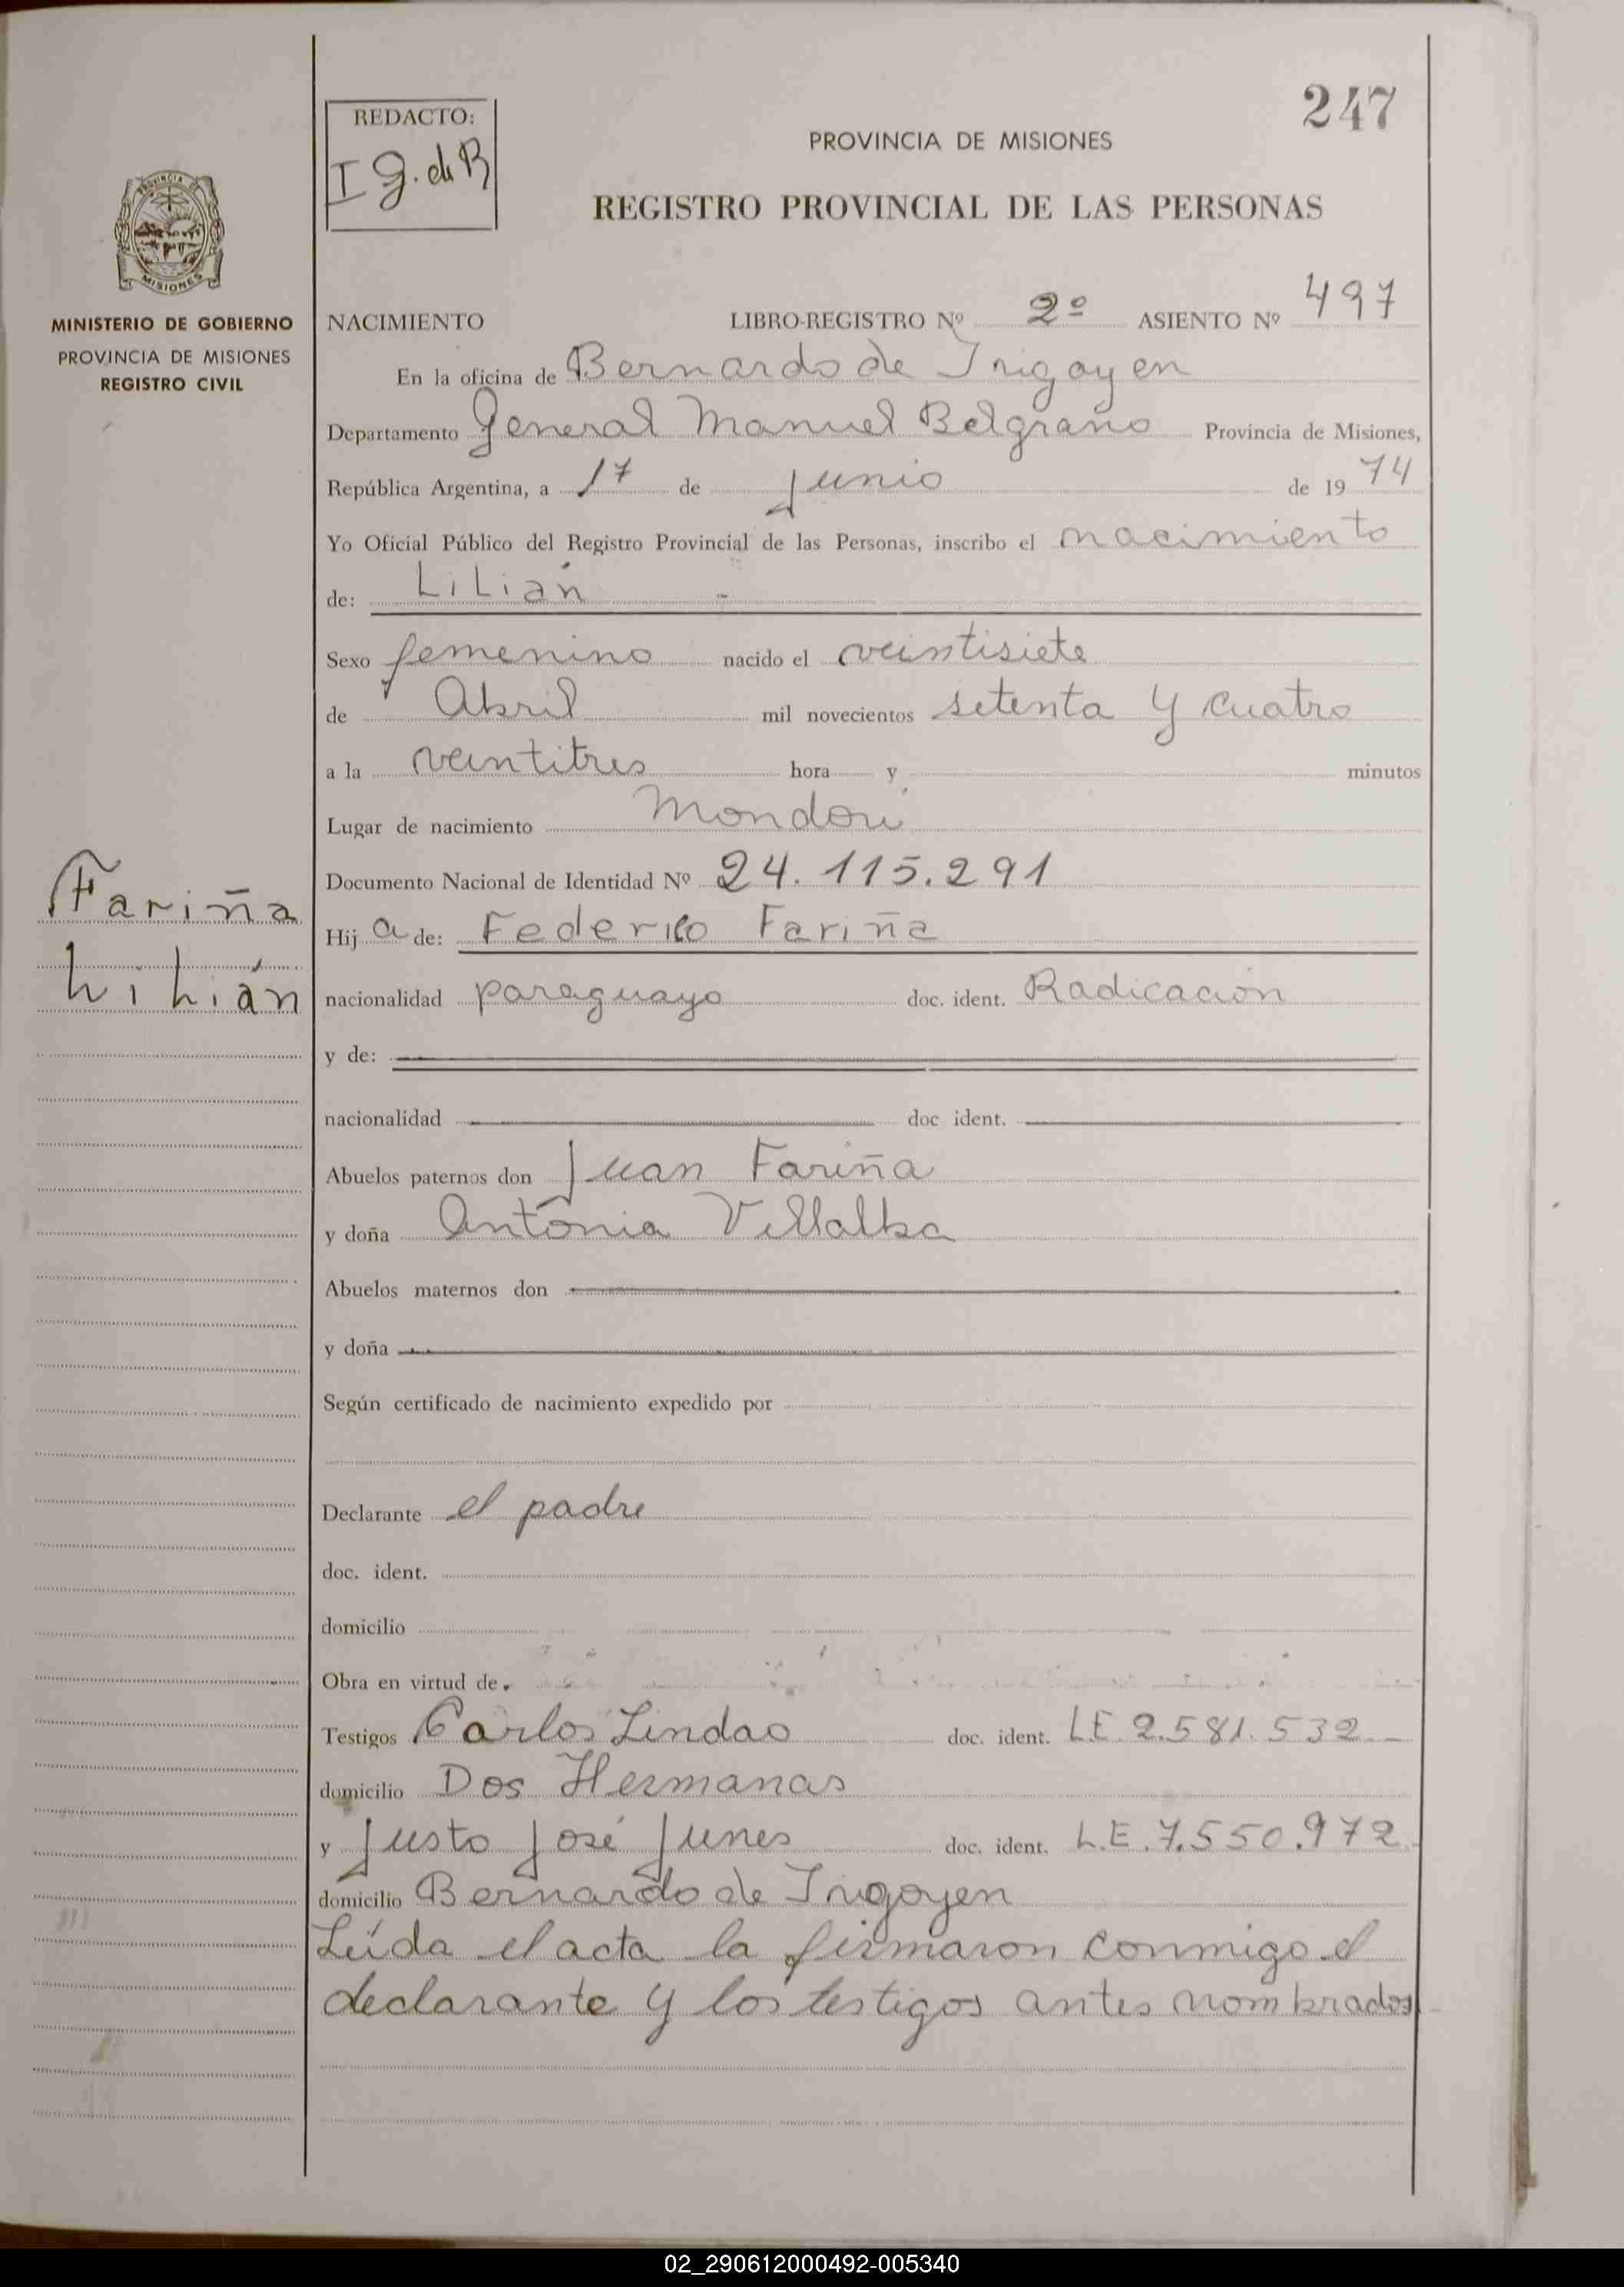 247
REDACTO:
I g. de B
PROVINCIA DE MISIONES
REGISTRO PROVINCIAL DE LAS PERSONAS
PROVINCIA DE
MISIONES
MINISTERIO DE GOBIERNO
PROVINCIA DE MISIONES
REGISTRO CIVIL
NACIMIENTO LIBRO-REGISTRO Nº 2º ASIENTO Nº 497
En la oficina de Bernardo de Irigoyen
Departamento General Manuel Belgrano Provincia de Misiones,
República Argentina, a 17 de Junio de 1974
Yo Oficial Público del Registro Provincial de las Personas, inscribo el nacimiento
de: Lilián
Sexo femenino nacido el veintisiete
de Abril mil novecientos setenta y cuatro
a la veintitres hora y minutos
Lugar de nacimiento Mondorí
Documento Nacional de Identidad Nº 24.115.291
Fariña
Lilián
Hija de: Federico Fariña
nacionalidad paraguayo doc. ident. Radicación
y de:
nacionalidad doc ident.
Abuelos paternos don Juan Fariña
y doña Antonia Villalba
Abuelos maternos don
y doña
Según certificado de nacimiento expedido por
Declarante el padre
doc. ident.
domicilio
Obra en virtud de
Testigos Carlos Lindao doc. ident. LE.2.581.532
domicilio Dos Hermanas
y Justo José Junes doc. ident. L.E.7.550.972
domicilio Bernardo de Irigoyen
Leída el acta la firmaron conmigo el
declarante y los testigos antes nombrados
02_290612000492-005340